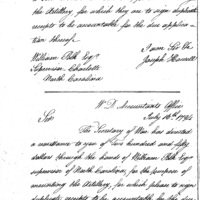 the Artillery, for which they are to sign duplicate
receipts to be accountable for the due applica-
tion thereof.
I am Sir &c
William Polk Esqr. Joseph Howell
Supervisor Charlotte
North Carolina
W. D. Accountants Office
Sir July 16th 1794
The Secretary of War has directed
a remittance to you of Two hundred and fifty
dollars through the hands of William Polk Esqr
supervisor of North Carolina, for the purpose of
mounting the Artillery, for which please to sign
duplicate receipts to be accountable for the due